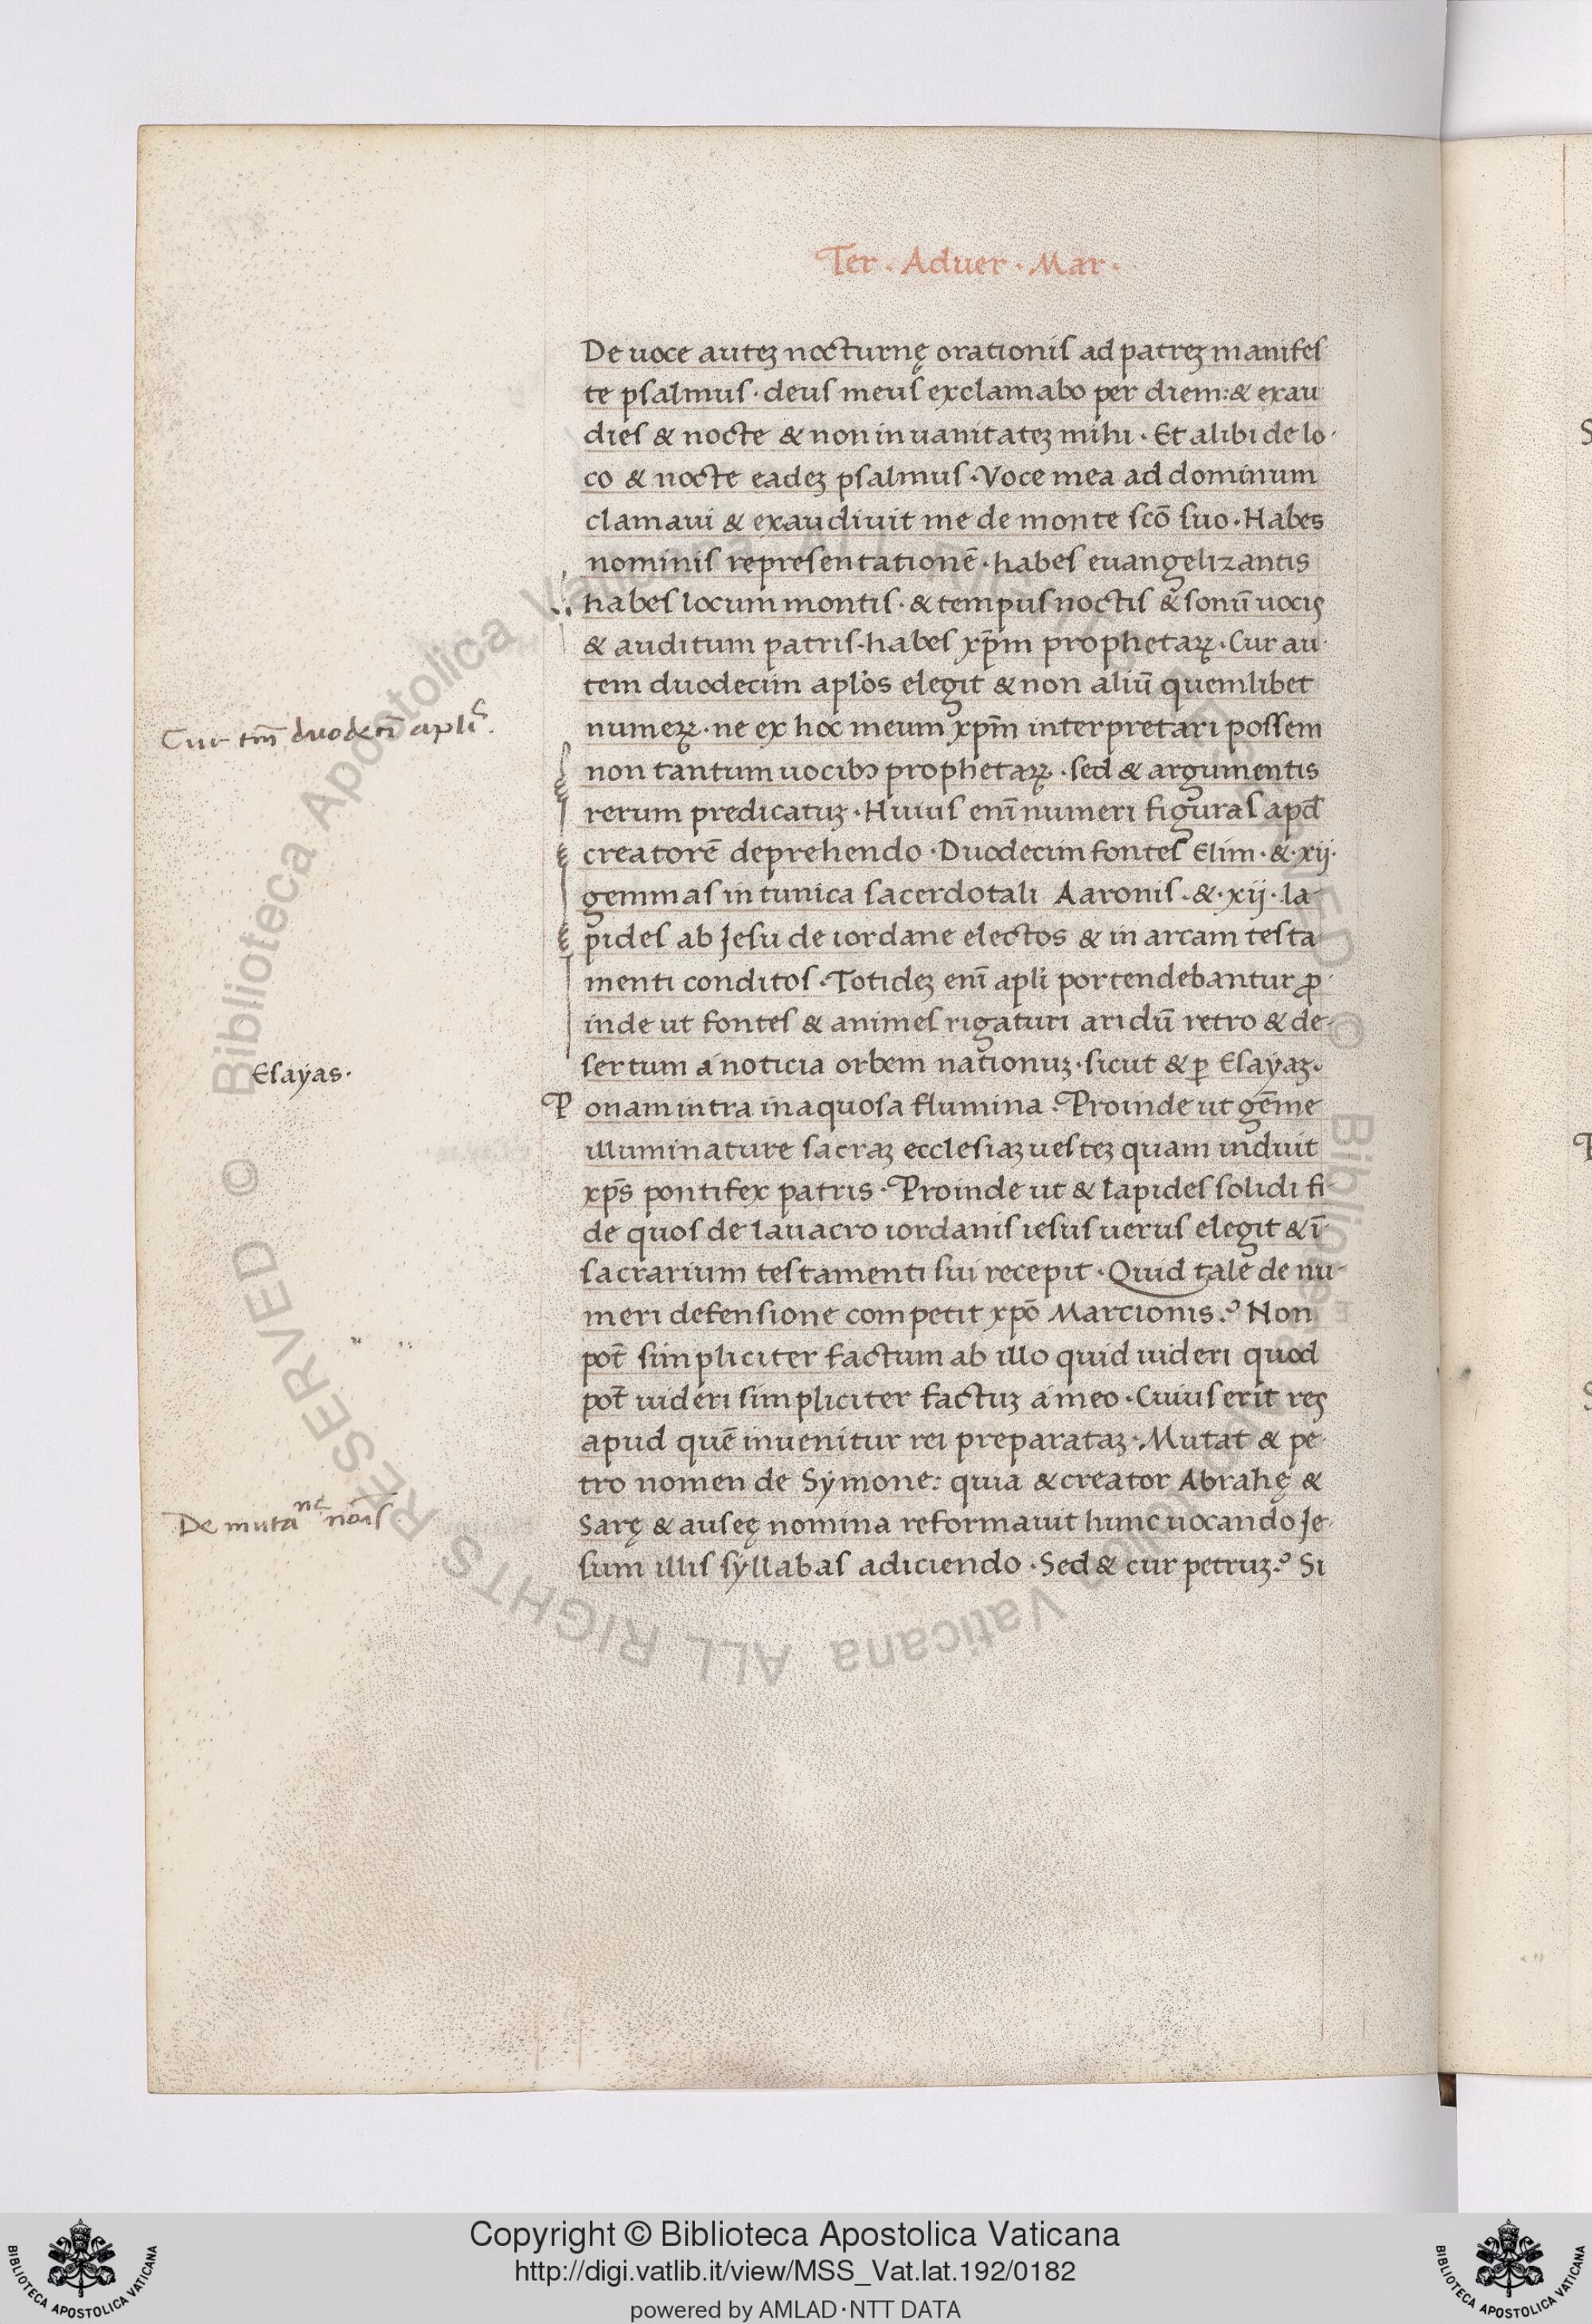 Ter . Aduer . Mar .
De uoce auteꝫ nocturnę orationis ad patreꝫ manifes
te psalmus · deus meus exclamabo per diem: & exau
dies & nocte & non in uanitateꝫ mihi · Et alibi de lo-
co & nocte eadeꝫ psalmus · Voce mea ad dominum
clamaui & exaudiuit me de monte scō suo · Habes
nominis representationē · habes euangelizantis
habes locum montis · & tempus noctis & sonū uocis
& auditum patris · habes xp̄m prophetaꝝ · Cur au-
tem duodecim aplos elegit & non aliū quemlibet
numeꝝ · ne ex hoc meum xpm̄ interpretari possem
non tantum uocibꝫ prophetaꝝ · sed & argumentis
Cur tm̄ duodecī apli.
rerum predicatuꝫ · Huius enī numeri figuras apd̄
creatorē deprehendo · Duodecim fontes Elim · & · xij ·
gemmas in tunica sacerdotali Aaronis · & · xij · la-
pides ab Jesu de iordane electos & in arcam testa
menti conditos · Totideꝫ enī apli portendebantur ꝓ
inde ut fontes & amnes rigaturi aridū retro & de-
sertum á noticia orbem nationuꝫ · sicut & ꝑ Esayaꝫ ·
Esayas ·
Ponam in tra inaquosa flumina · Proinde ut gēme
illuminature sacraꝫ ecclesiaꝫ uesteꝫ quam induit
xp̄s pontifex patris · Proinde ut & lapides solidi fi-
de quos de lauacro iordanis iesus uerus elegit & ī
sacrarium testamenti sui recepit · Quid tale de nu-
meri defensione competit xpō Marcionis? Non
pot̄ simpliciter factum ab illo quid uideri quod
pot̄ uideri simpliciter factuꝫ á meo · Cuius erit res
apud quē inuenitur rei preparataꝫ · Mutat & pe-
tro nomen de Symone: quia & creator Abrahę &
De muta^ne nōis
Sarę & auseę nomina reformauit hunc uocando Je-
sum illis syllabas adiciendo · Sed & cur petruꝫ? Si
© Biblioteca Apostolica Vaticana ALL RIGHTS RESERVED
Copyright © Biblioteca Apostolica Vaticana
http://digi.vatlib.it/view/MSS_Vat.lat.192/0182
powered by AMLAD·NTT DATA
BIBLIOTECA APOSTOLICA VATICANA
BIBLIOTECA APOSTOLICA VATICANA